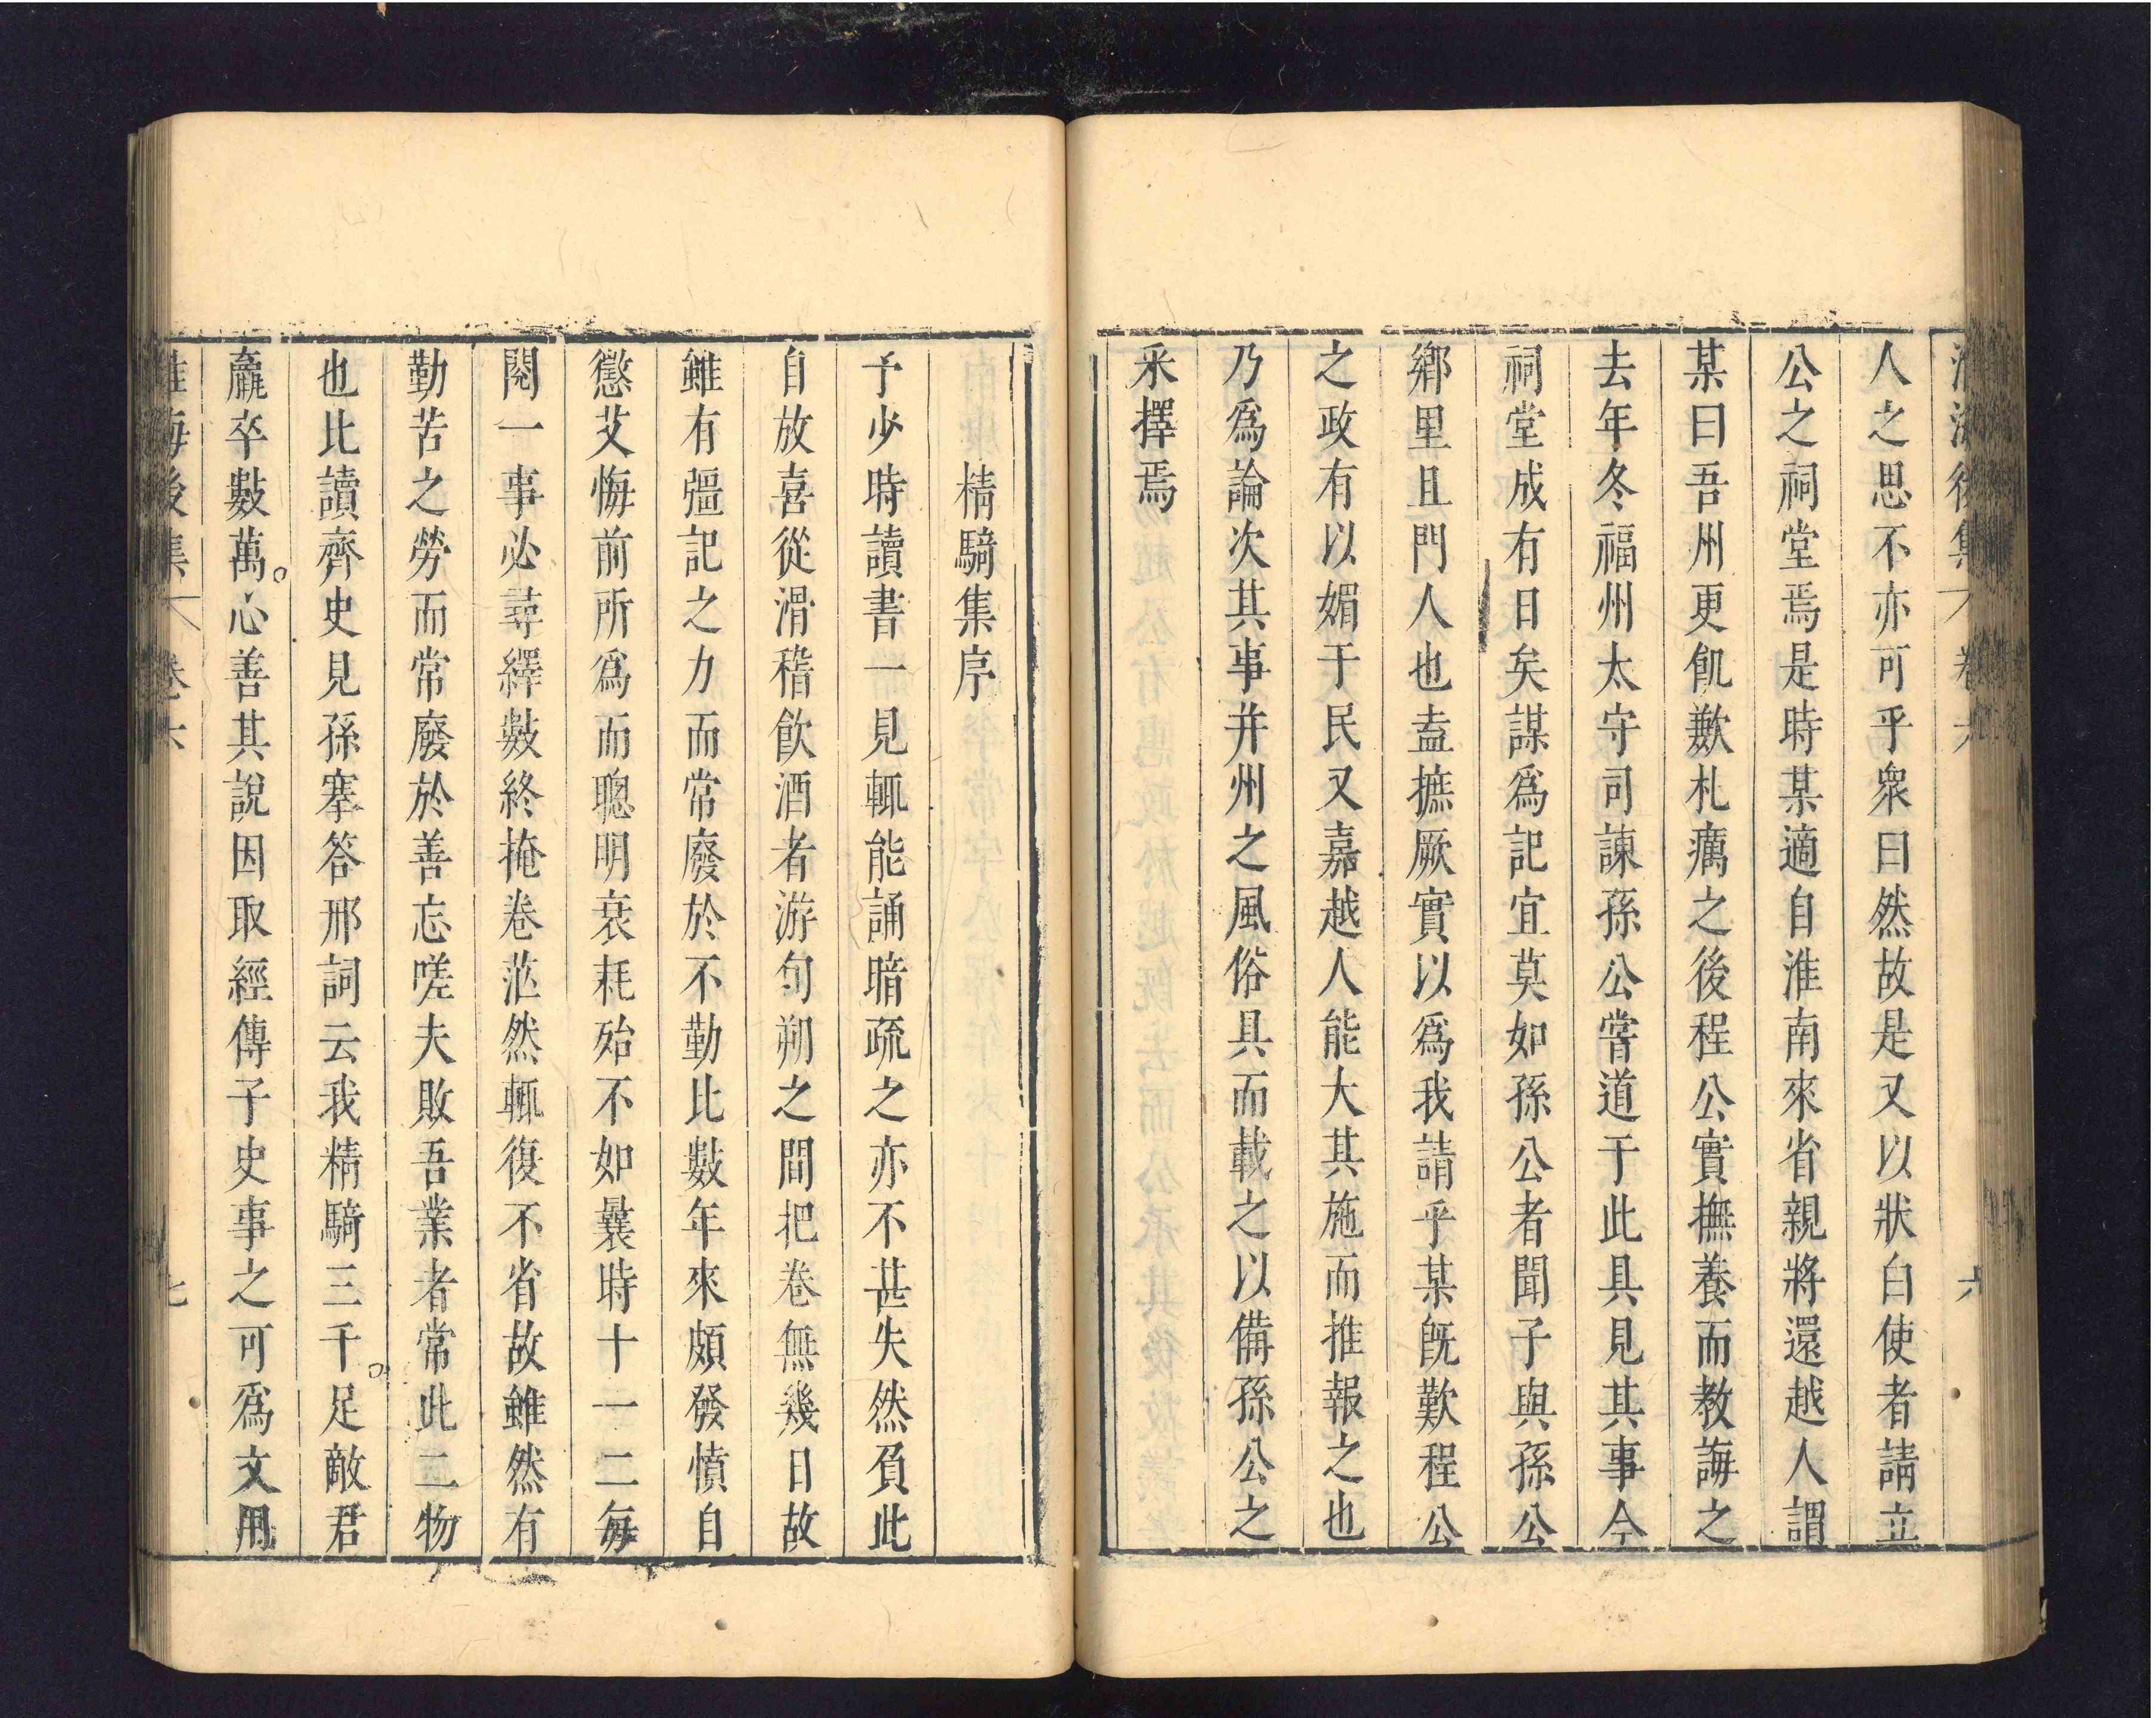 淮海後集 卷六 六
人之思不亦可乎衆曰然故是又以狀白使者請立
公之祠堂焉是時某適自淮南來省親將還越人謂
某曰吾州更飢歉札癘之後程公實撫養而教誨之
去年冬福州太守司諫孫公嘗道于此具見其事今
祠堂成有日矣謀爲記宜莫如孫公者聞子與孫公
鄉里且門人也盍摭厥實以爲我請乎某旣歎程公
之政有以媚于民又嘉越人能大其施而推報之也
乃爲論次其事并州之風俗具而載之以備孫公之
采擇焉
精騎集序
予少時讀書一見輒能誦暗疏之亦不甚失然負此
自放喜從滑稽飲酒者游旬朔之間把卷無幾日故
雖有彊記之力而常廢於不勤比數年來頗發憤自
懲艾悔前所爲而聰明衰耗殆不如曩時十一二每
閱一事必尋繹數終掩卷茫然輒復不省故雖然有
勤苦之勞而常廢於善忘嗟夫敗吾業者常此二物
也比讀齊史見孫搴答邢詞云我精騎三千足敵君
羸卒數萬心善其說因取經傳子史事之可爲文用
淮海後集 卷六 七